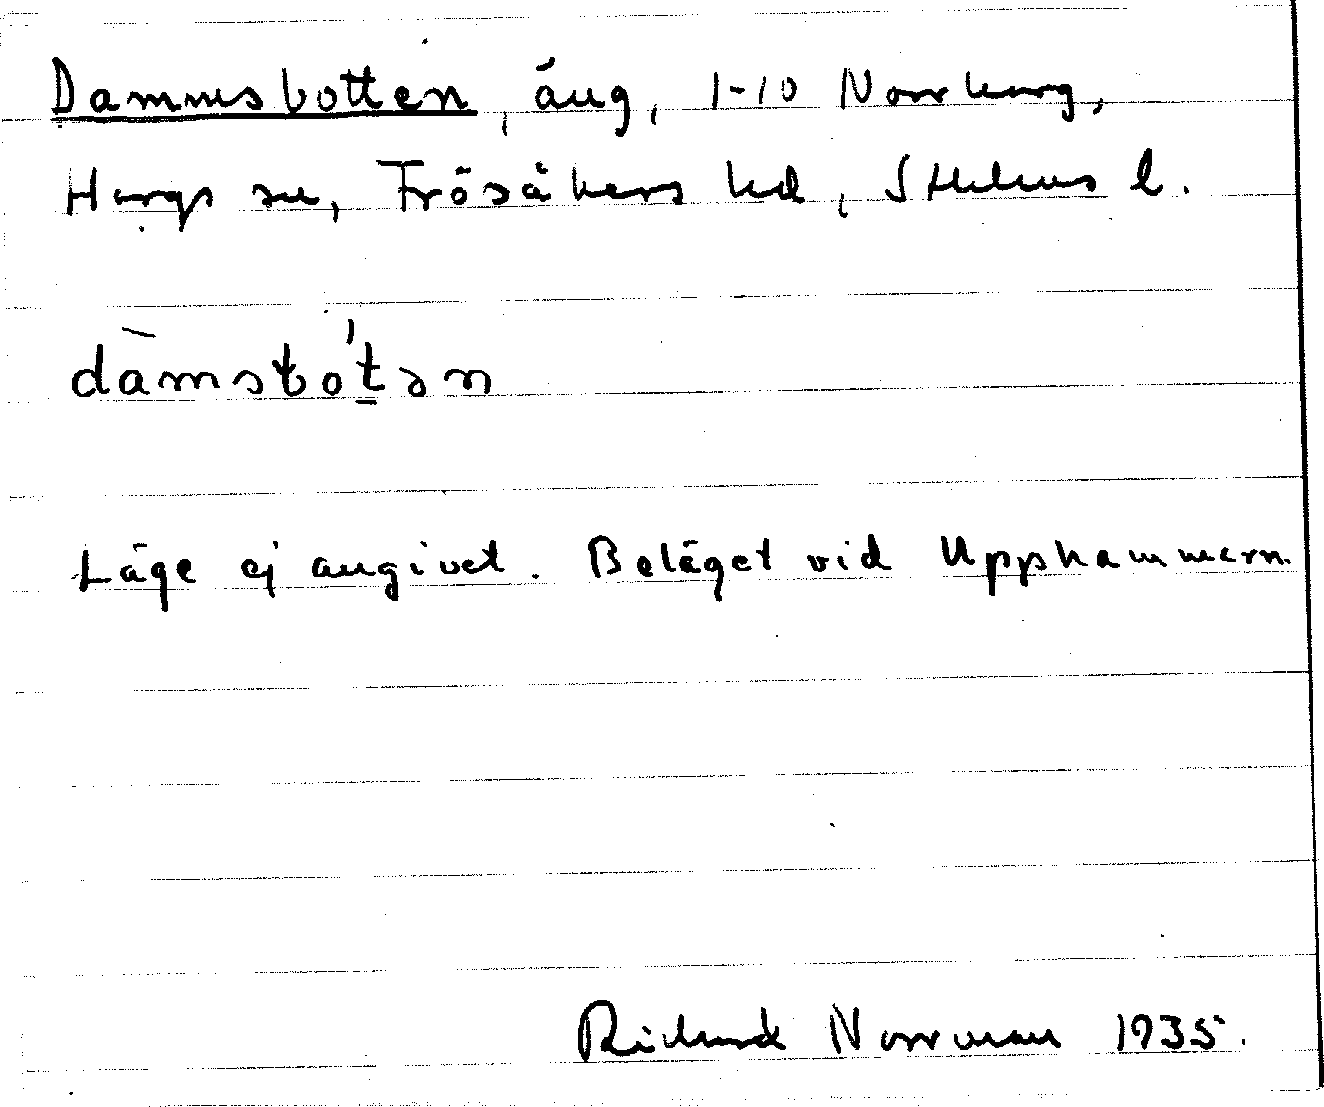 Dammsbotten, äng, 1-10 Norrharg,
Hargs sn, Frösåkers hd, Sthlms l.
dàmsbo'tən
Läge ej angivet. Beläget vid Upphammarn.
Richard Norrman 1935.